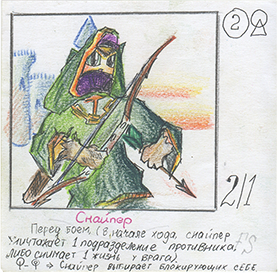 2
2/1
Снайпер
Перед боем. (в начале хода, снайпер
Уничтожает 1 подразделение противника,
либо снимает 1 жизнь у врага).
→ Снайпер выбирает блокирующих себе